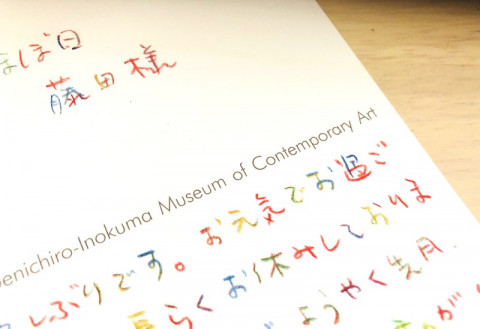 ほぼ日
藤田様
enichiro-Inokuma Museum of Contemporary Art
しぶりです。お元気でお過ご
らくお休みしておりま
ようやく先月